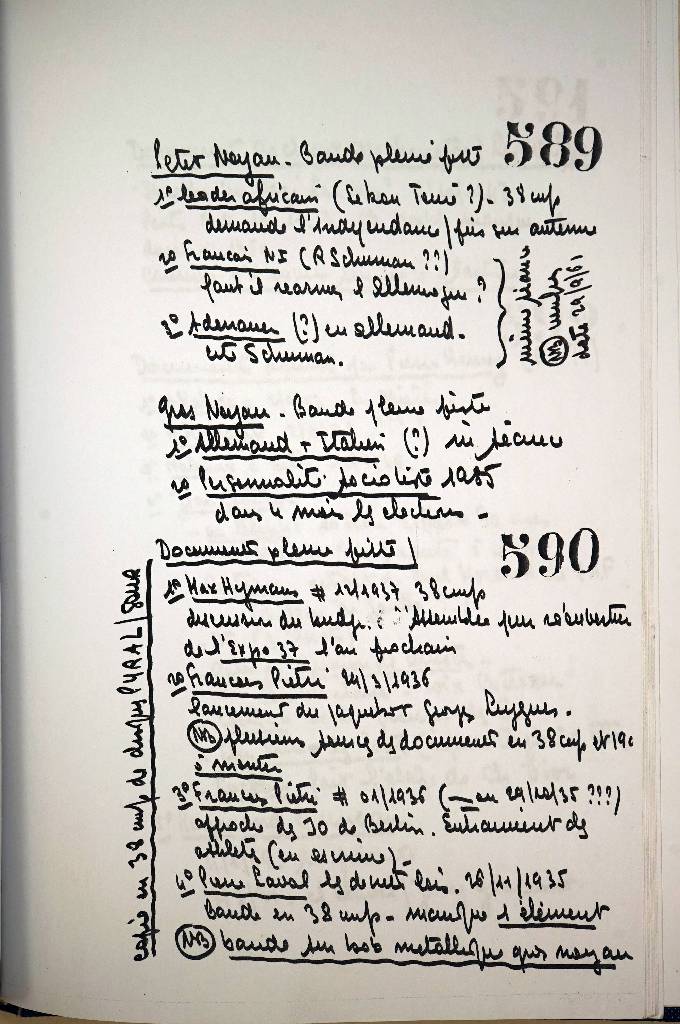 589
Peter Noyau. Bande pleine piste
1º leader africain (Sekou Touré ?). 38 cm/s
demande l'indépendance / pris sur antenne
2º Français NI (R Schuman ??)
faut il réarmer l'Allemagne ?
3º Adenauer (?) en allemand.
cite Schuman.
même séance
NB
date 29/9/61
gros Noyau. Bande pleine piste
1º Allemand + Italien (?) in séance
2º Personnalité socialiste 1985
dans 4 mois les élections -
590
Documents pleine piste
1º Max Hymans # 12/1937 38 cm/s
discussion du budg. à l'Assemblée pour réouverture
de l'Expo 37 l'an prochain
2º François Piétri 24/3/1936
lancement du paquebot Georges Leygues.
NB plusieurs prises de documents en 38 cm/s et 19c
à monter
3º François Piétri # 01/1936 (— ou 29/10/35 ???)
approche des JO de Berlin. Entrainement des
athlètes (en escrime) -
4º Pierre Laval les décrets lois. 26/11/1935
bande en 38 cm/s - manque 1 élément
NB bande sur bob métallique gros noyau
copié en 38 cm/s de disques PYRAL /